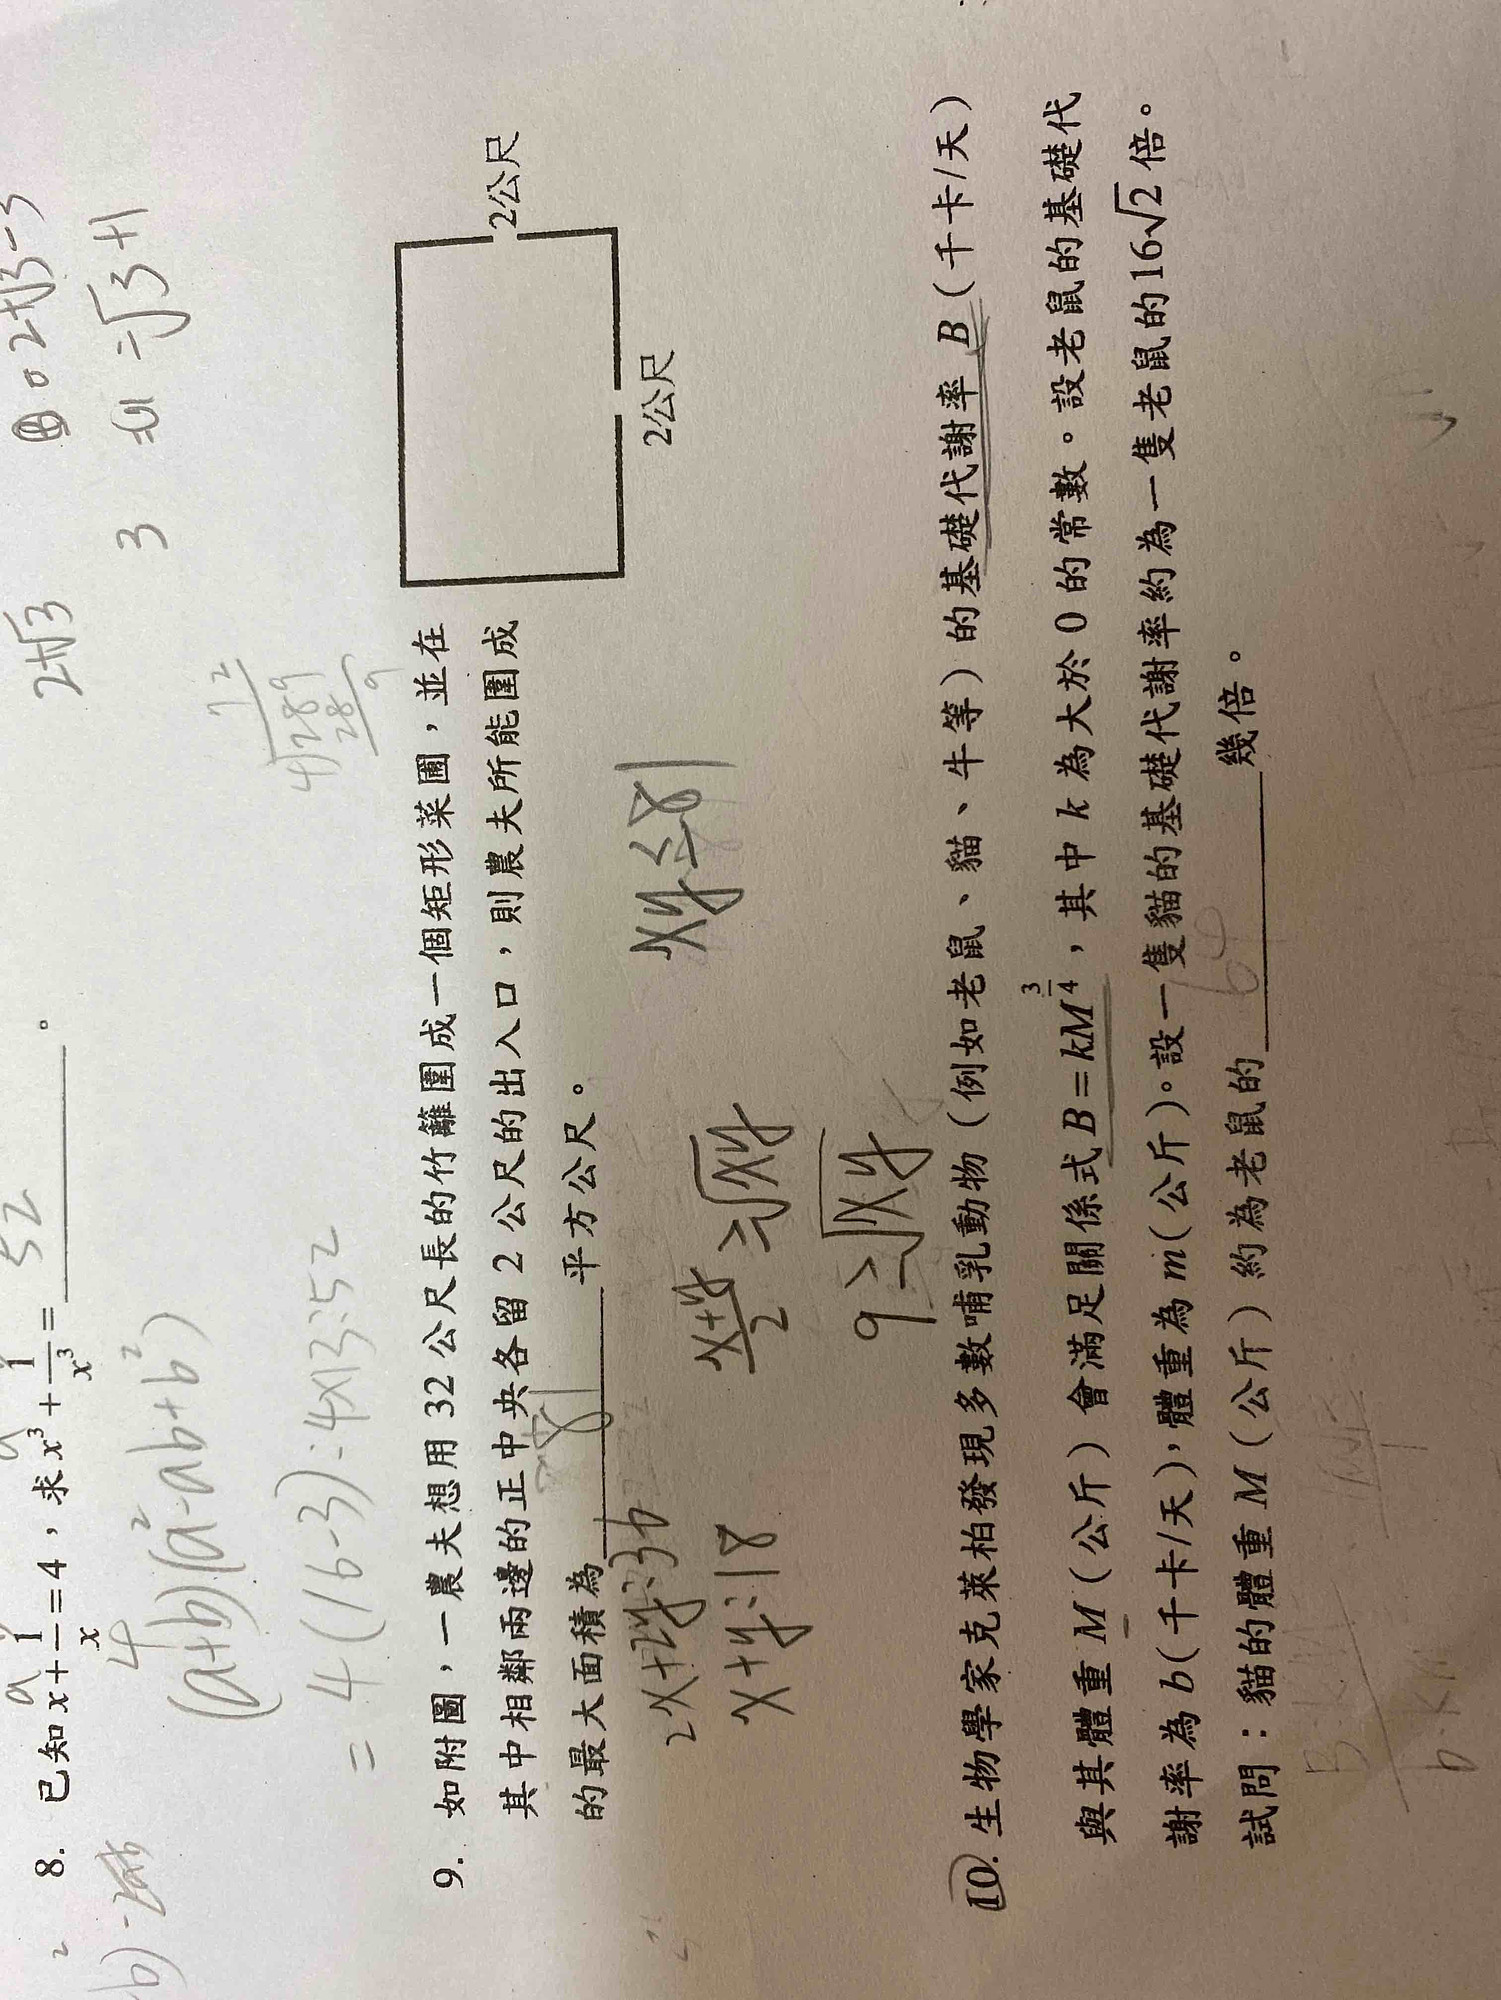 2+√3
3
=√3+1
8. 已知x+1/x=4，求x³+1/x³= 52 。
(a+b)(a²-ab+b²)
=4(16-3)=4×13=52
72
4)289
28
9
9. 如附圖，一農夫想用 32 公尺長的竹籬圍成一個矩形菜圃，並在
其中相鄰兩邊的正中央各留 2 公尺的出入口，則農夫所能圍成
的最大面積為 81 平方公尺。
2公尺
2公尺
2x+2y=36
x+y=18
x+y/2 ≥√xy
9≥√xy
xy≤81
10. 生物學家克萊柏發現多數哺乳動物（例如老鼠、貓、牛等）的基礎代謝率 B（千卡/天）
與其體重 M（公斤）會滿足關係式 B=kM^(3/4)，其中 k 為大於 0 的常數。設老鼠的基礎代
謝率為 b(千卡/天)，體重為 m(公斤)。設一隻貓的基礎代謝率約為一隻老鼠的16√2 倍。
試問：貓的體重 M（公斤）約為老鼠的 64 幾倍。